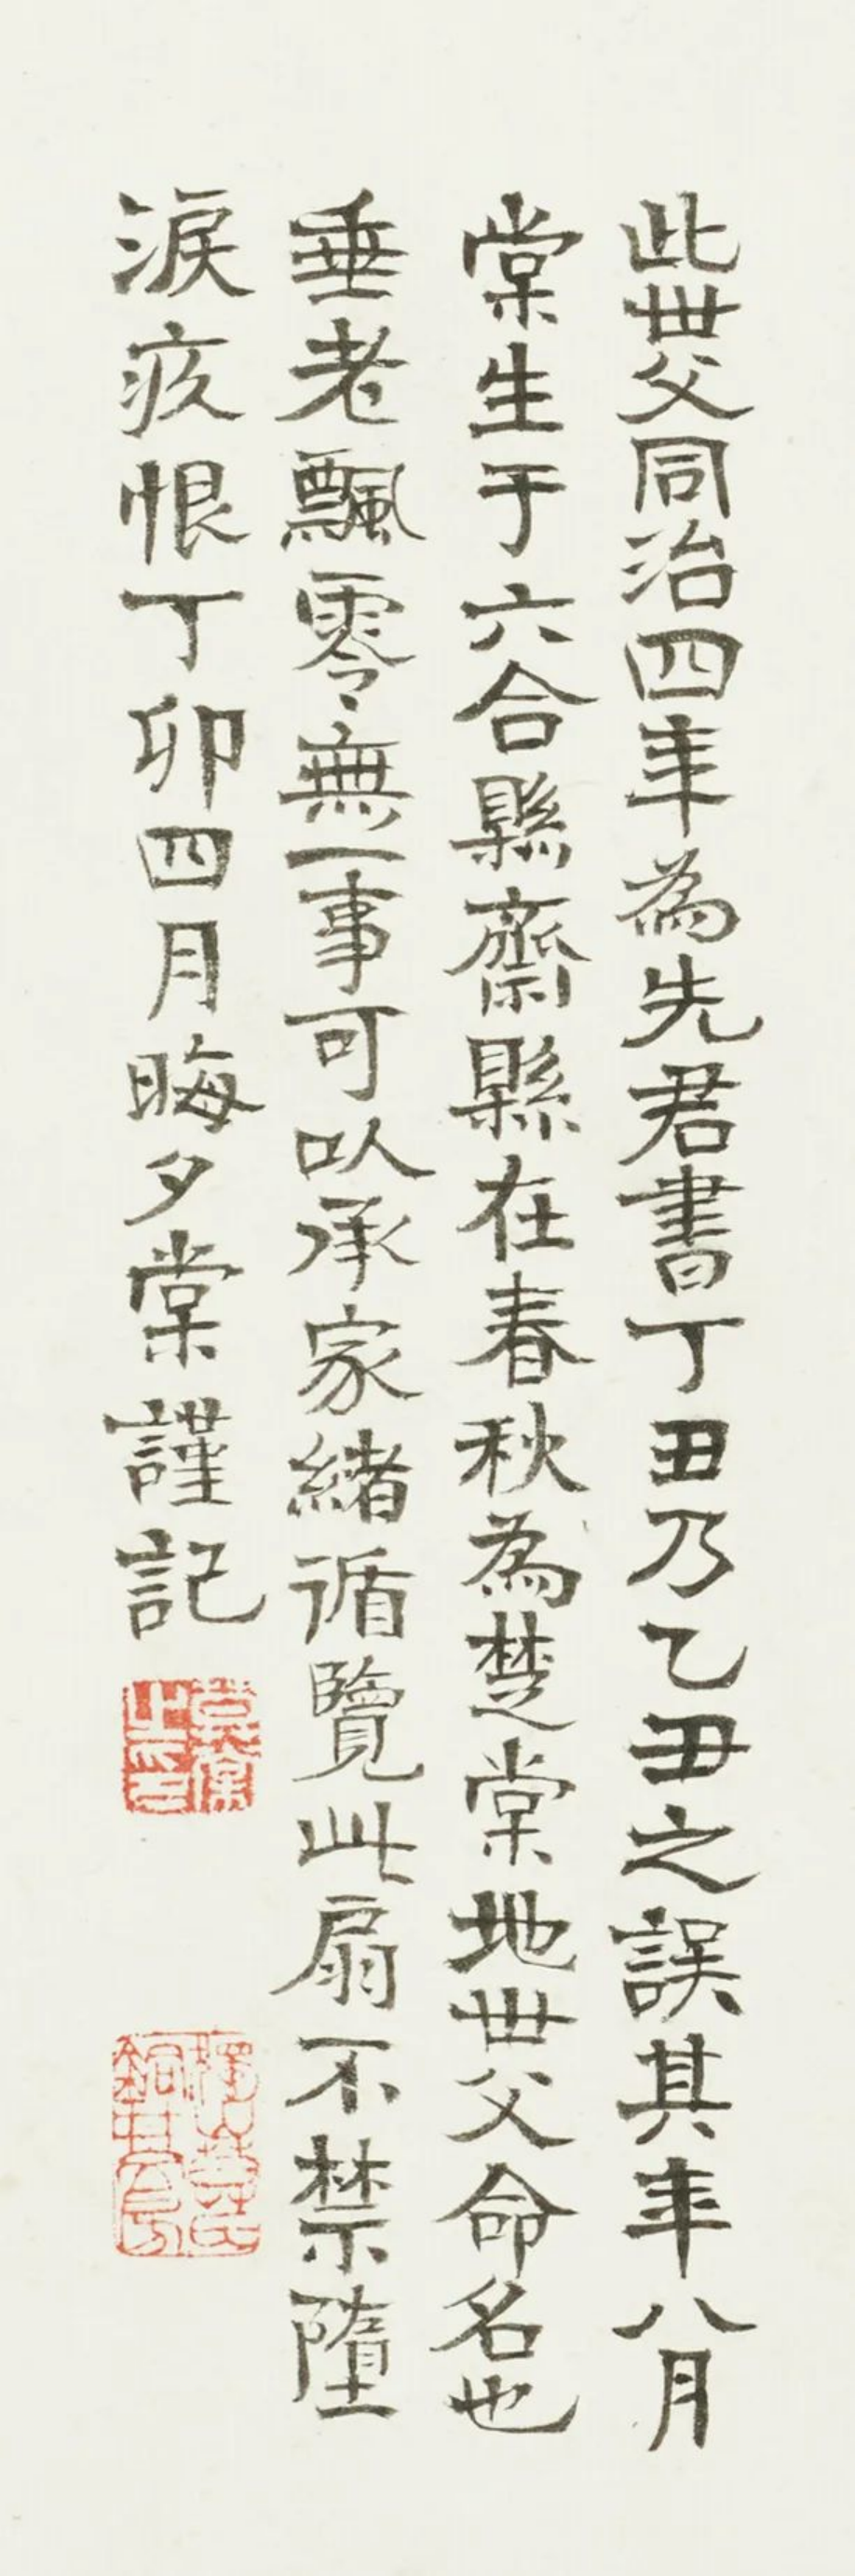 此世父同治四年為先君書丁丑乃乙丑之誤其年八月
棠生于六合縣齋縣在春秋為楚棠地世父命名也
垂老飄零無一事可以承家緒循覽此扇不禁墮
淚疚恨丁卯四月晦夕棠謹記